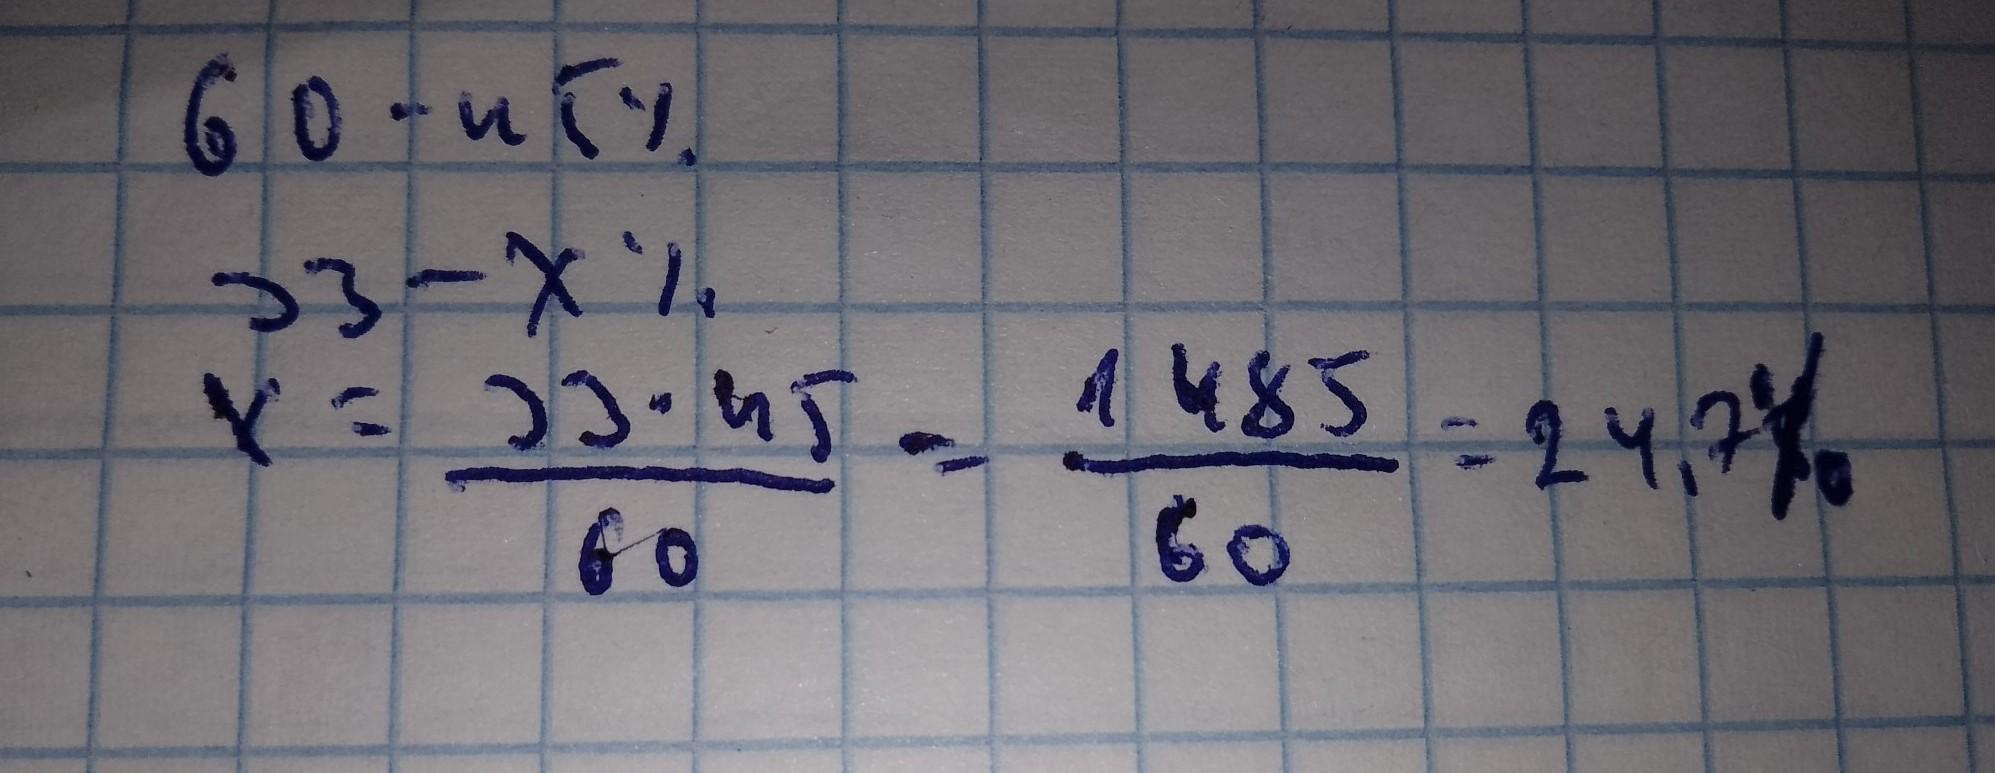 60 - 45%
33 - X%
X = 33·45/60 = 1485/60 = 24,7%